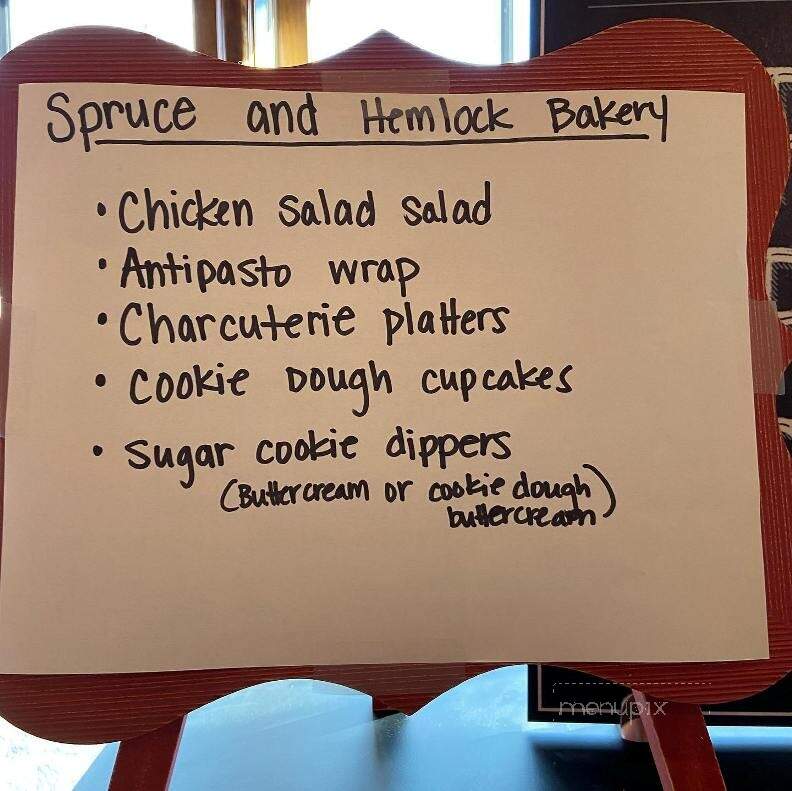 Spruce and Hemlock Bakery
• Chicken Salad Salad
• Antipasto wrap
• Charcuterie platters
• Cookie Dough cupcakes
• Sugar cookie dippers
(Buttercream or cookie dough
buttercream)
menupix